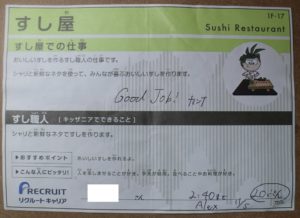 すし屋
IF-17
Sushi Restaurant
すし屋での仕事
おいしいすしを作るすし職人の仕事です。
シャリと新鮮なネタを使って、みんなが喜ぶおいしいすしを作ります。
Good Job!
すし職人 (キッザニアでできること)
シャリと新鮮なネタですしを作ります。
▶おすすめポイント
おいしいすしを作れるよ。
▶こんな人にピッタリ!
RECRUIT
リクルートキャリア
さん
2:40
Alex
11/5